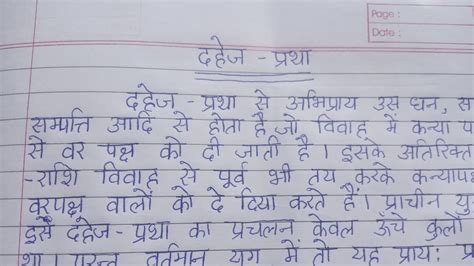 Page :
Date :
दहेज - प्रथा
दहेज - प्रथा से अभिप्राय उस धन,
सम्पत्ति आदि से होता है जो विवाह में कन्या
से वर पक्ष को दी जाती है। इसके अतिरिक्त
-राशि विवाह से पूर्व भी तय करके कन्यापक्ष
वरपक्ष वालों को दे दिया करते हैं। प्राचीन
इसे दहेज - प्रथा का प्रचलन केवल ऊँचे कुलों
था। परन्तु वर्तमान युग में तो यह प्रायः